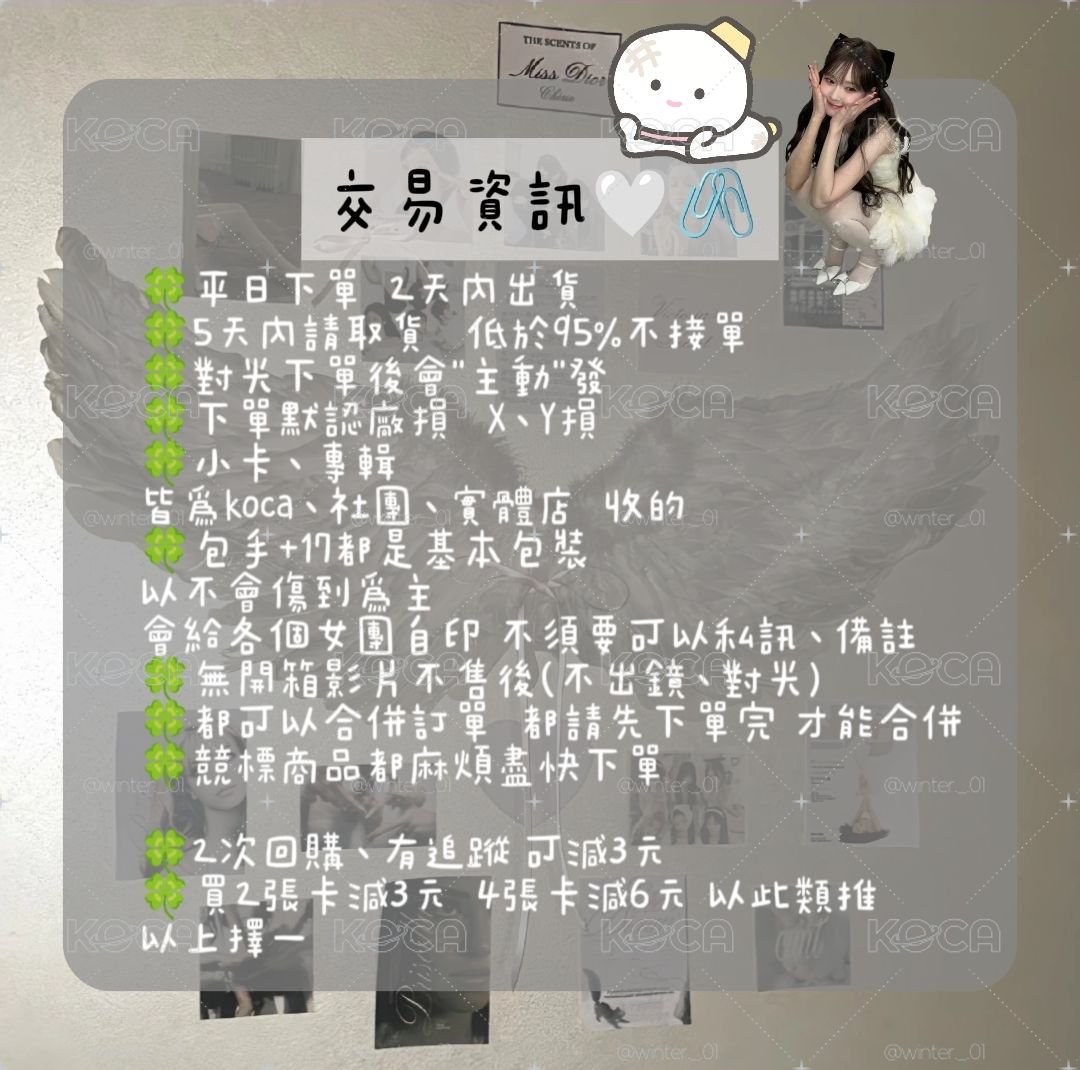 THE SCENTS OF
Miss Dior
Chérie
交易資訊
平日下單 2天內出貨
5天內請取貨 低於95%不接單
對光下單後會"主動"發
下單默認廠損 X、Y損
小卡、專輯
皆為koca、社團、實體店 收的
包手+17都是基本包裝
以不會傷到為主
會給各個女團自印 不須要可以私訊、備註
無開箱影片不售後(不出鏡、對光)
都可以合併訂單 都請先下單完 才能合併
競標商品都麻煩盡快下單
2次回購、有追蹤 可減3元
買2張卡減3元 4張卡減6元 以此類推
以上擇一
KOCA
@winter._01